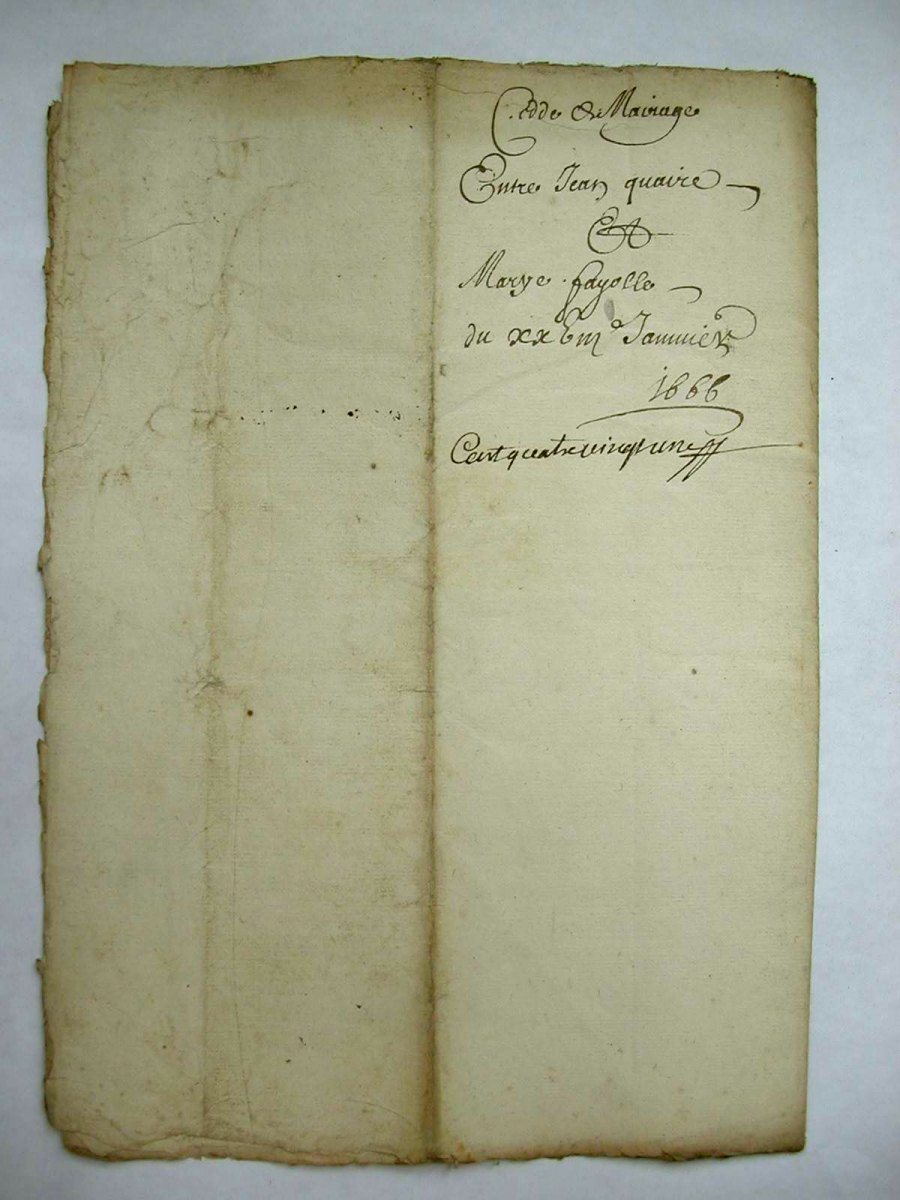 Cedde de Mariage
Entre Jean quaire
Et
Marye fayolle
du xxbme Januier
1666
Cent quatre vingt une